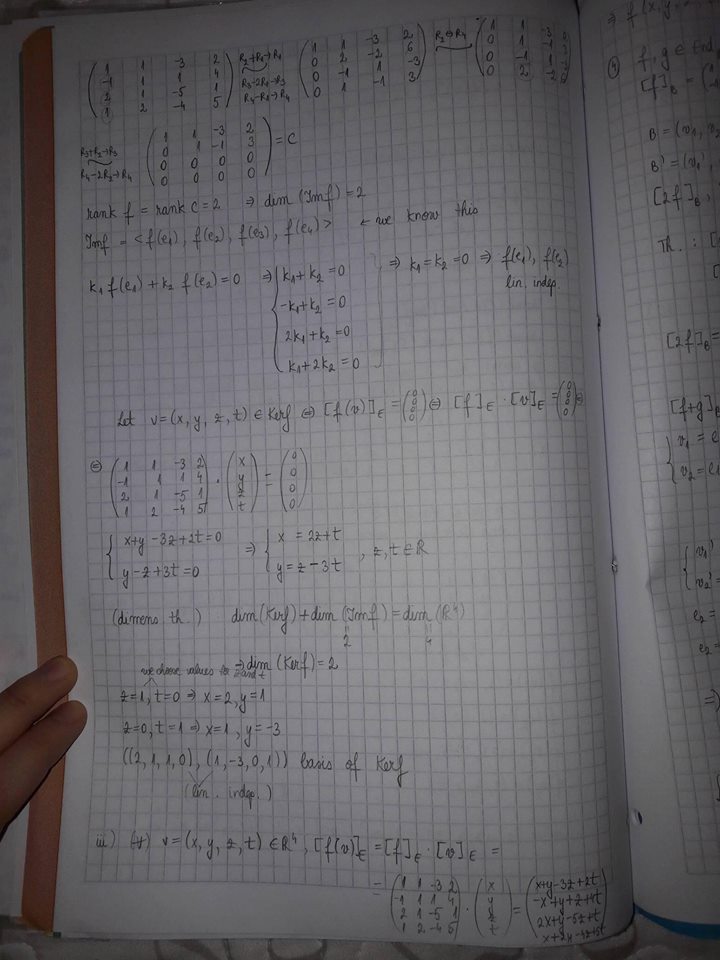 (1 1 -3 2 / -1 1 1 4 / 2 1 -5 1 / 1 2 -4 5) R2+R1→R1 R3-2R1→R3 R4-R1→R4 (1 1 -3 2 / 0 2 -2 6 / 0 -1 1 -3 / 0 1 -1 3) R2↔R4 (1 1 -3 / 0 1 -1 / 0 -1 1 / 0 2 -2
R3+R2→R3 R4-2R2→R4 (1 1 -3 2 / 0 1 -1 3 / 0 0 0 0 / 0 0 0 0) = C
rank f = rank C = 2 ⇒ dim (Imf) = 2
Imf = <f(e1), f(e2), f(e3), f(e4)> ← we know this
k1 f(e1) + k2 f(e2) = 0 ⇒ { k1+k2 = 0 } ⇒ k1 = k2 = 0 ⇒ f(e1), f(e2)
-k1+k2 = 0 lin. indep.
2k1+k2 = 0
k1+2k2 = 0
Let v = (x, y, z, t) ∈ Kerf ⇔ [f(v)]E = (0 / 0 / 0 / 0) ⇔ [f]E · [v]E = (0 / 0 / 0 / 0) ⇔
⇔ (1 1 -3 2 / -1 1 1 4 / 2 1 -5 1 / 1 2 -4 5) · (x / y / z / t) = (0 / 0 / 0 / 0)
{ x+y-3z+2t=0 ⇒ { x = 2z+t
y-z+3t=0 y = z-3t , z, t ∈ ℝ
(dimens. th.) dim(Kerf) + dim(Imf) = dim(ℝ4)
2 4
⇒ dim (Kerf) = 2
we choose values for z and t
z=1, t=0 ⇒ x=2, y=1
z=0, t=1 ⇒ x=1, y=-3
((2,1,1,0), (1,-3,0,1)) basis of Kerf
(lin. indep.)
iii) (∀) v = (x, y, z, t) ∈ ℝ4, [f(v)]E = [f]E · [v]E =
= (1 1 -3 2 / -1 1 1 4 / 2 1 -5 1 / 1 2 -4 5) · (x / y / z / t) = (x+y-3z+2t / -x+y+z+4t / 2x+y-5z+t / x+2y-4z+5t)
⇒ f(x, y,
f, g ∈ End
[f]B = (
B = (v1, v2
B' = (v1',
[2f]B,
Th. : [
[
[2f]B =
[f+g]B
{ v1 = e
v2 = e
{ v1' =
v2' =
e2 =
e2 =
⇒